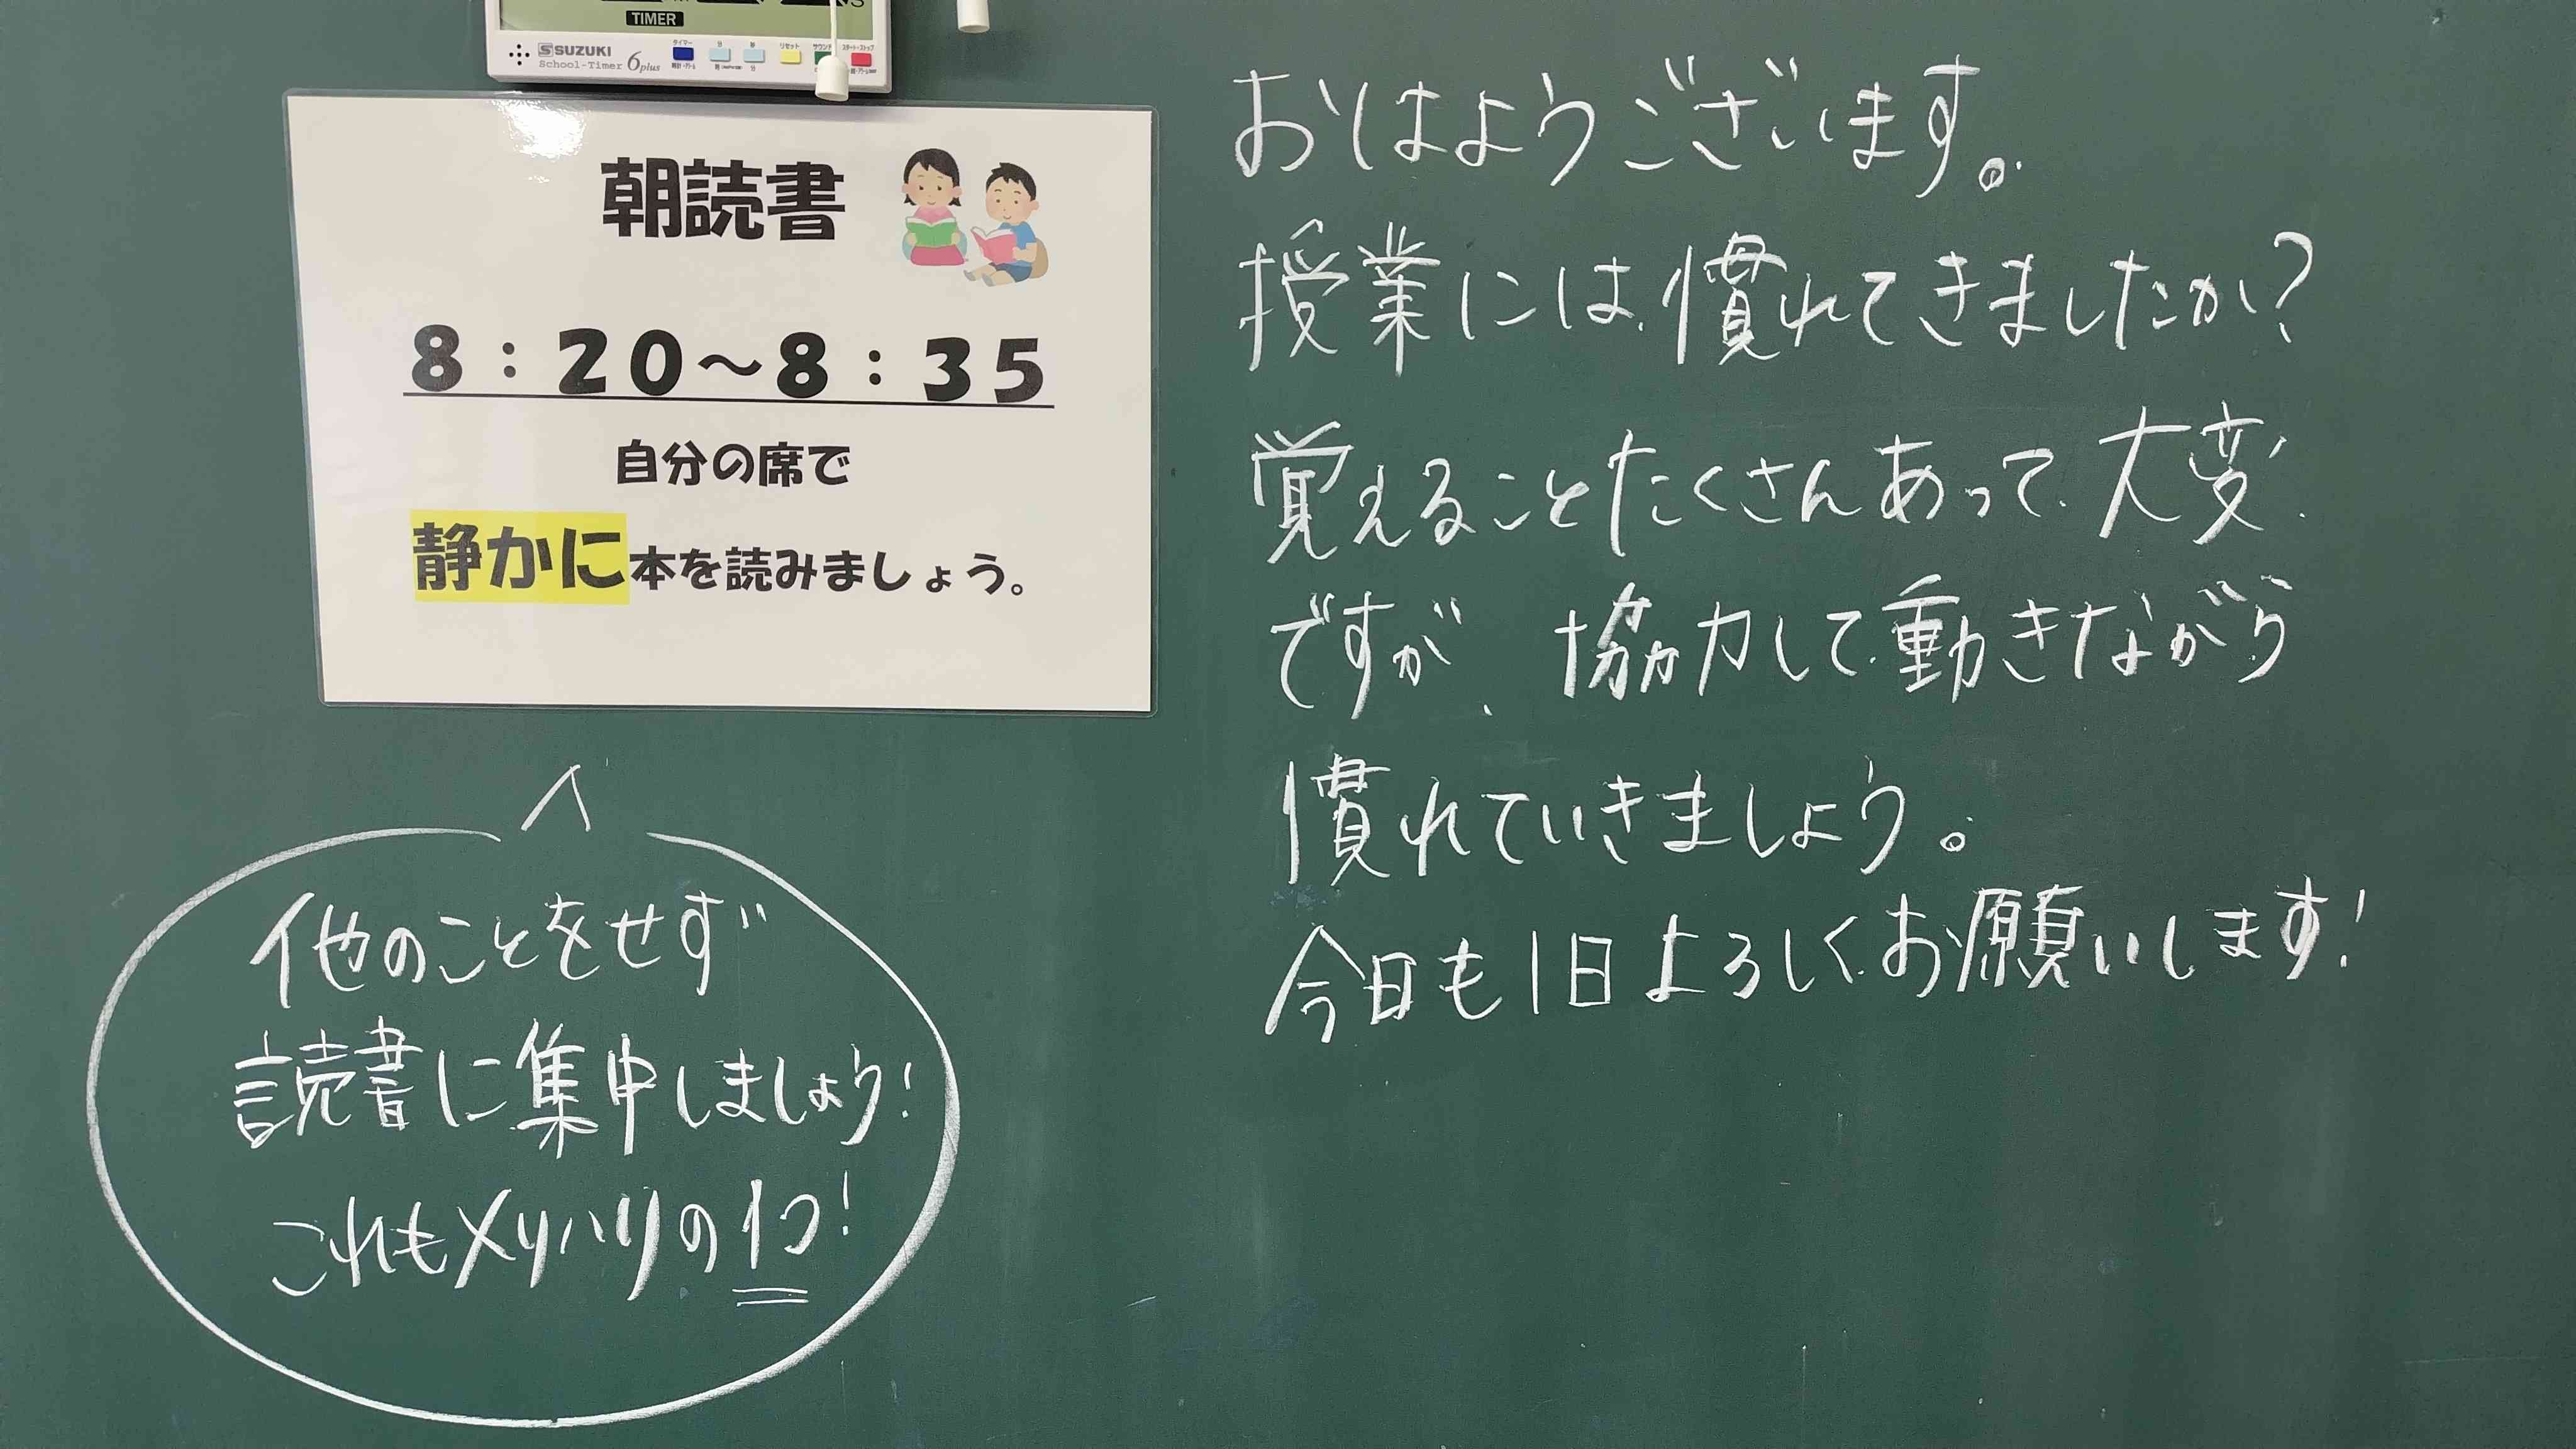 TIMER
SUZUKI
School-Timer 6plus
タイマー 分 秒 リセット サウンド スタート・ストップ
朝読書
8：20～8：35
自分の席で
静かに本を読みましょう。
他のことをせず
読書に集中しましょう！
これもメリハリの1つ！
おはようございます。
授業には慣れてきましたか？
覚えることたくさんあって大変
ですが、協力して動きながら
慣れていきましょう。
今日も1日よろしくお願いします！